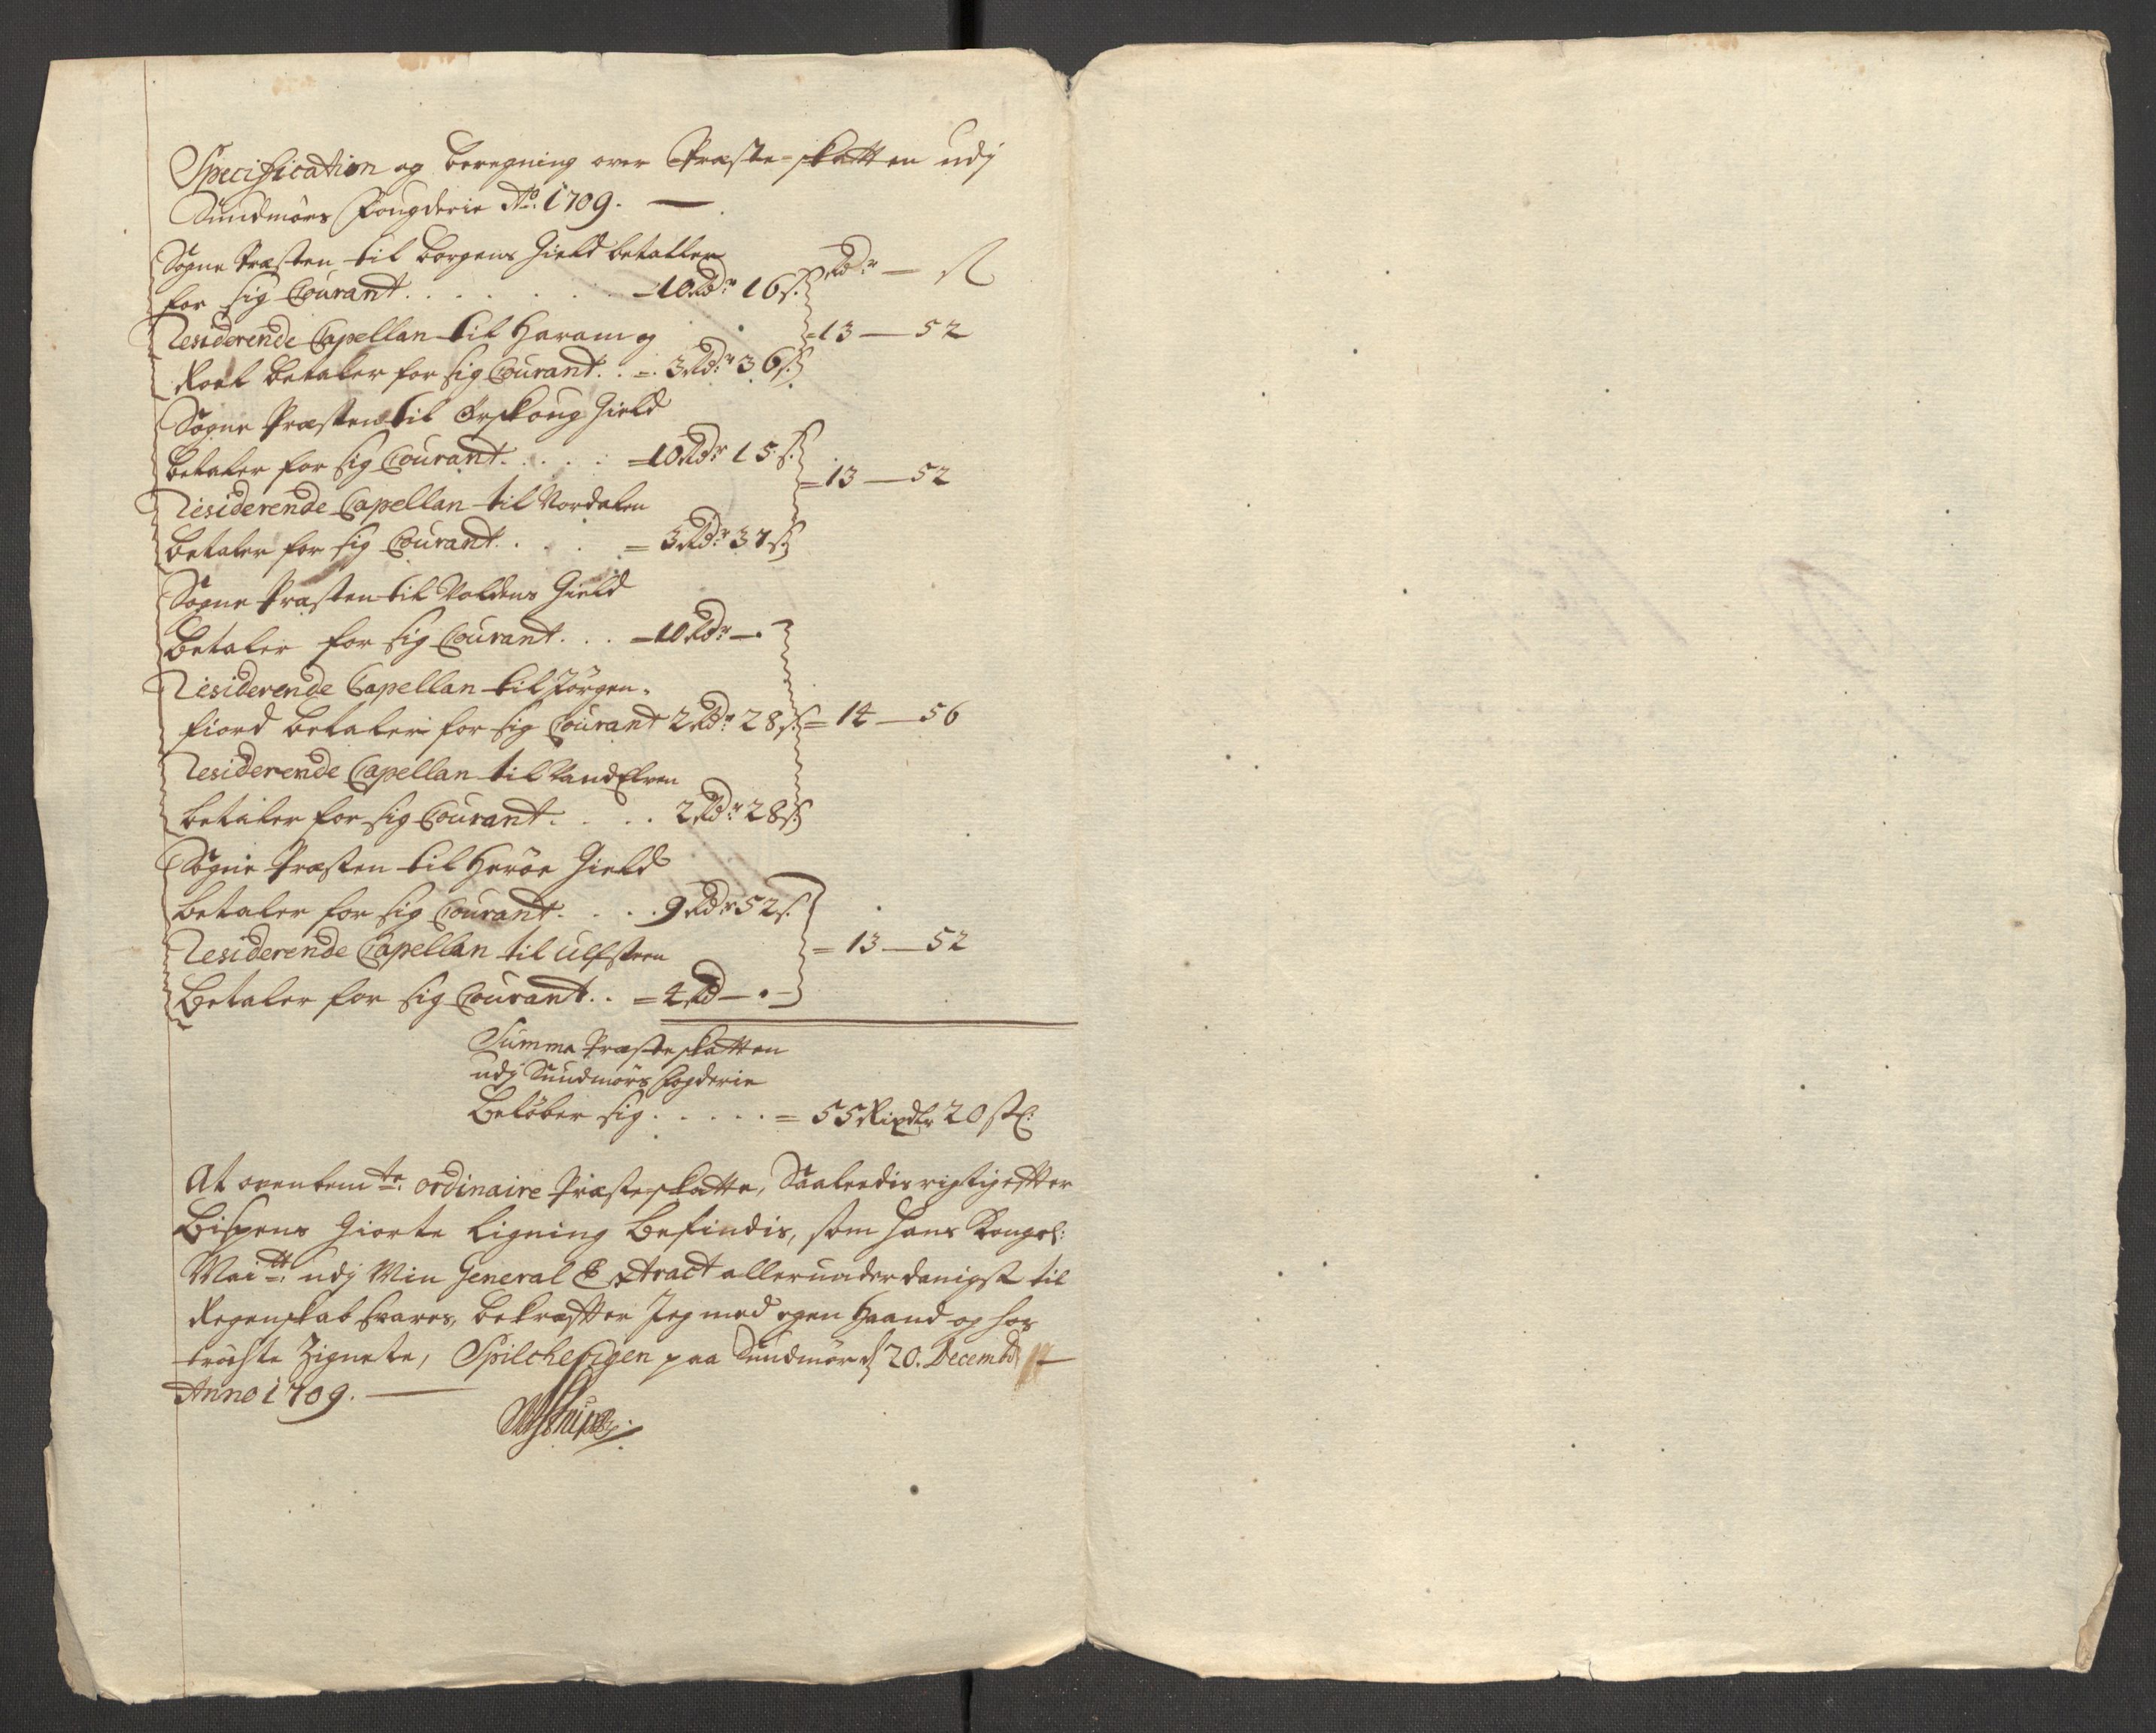 Specification og beregning over Præste-skatten udj
Sundmørs Fougderie Ao. 1709. —
Sogne Præsten til Borgens Gield betaller
for sig Courant. . . . . . . 10 Rdr 16 s. Rdr — s
Residerende Capellan til Haram og
Roel betaler for sig Courant. . = 3 Rdr 36 s. = 13 — 52
Sogne Præsten til Ørskoug Gield
betaler for sig Courant. . . . . = 10 Rdr 15 s.
Residerende Capellan til Nordalen = 13 — 52
betaler for sig Courant. . . . = 3 Rdr 37 s
Sogne Præsten til Voldens Gield
betaler for sig Courant. . . — 10 Rdr — .
Residerende Capellan til Jørgen-
fiord betaler for sig Courant 2 Rdr 28 s. = 14 — 56
Residerende Capellan til Vandelven
betaler for sig Courant. . . . 2 Rdr 28 s
Sogne Præsten til Herøe Gield
betaler for sig Courant. . . . 9 Rdr 52 s.
Residerende Capellan til Ulfsteen = 13 — 52
Betaler for sig Courant. . = 4 Rd — . —
Summa Præsteskatten
udj Sundmørs Fogderie
Beløber sig . . . . . = 55 Rixdlr 20 sk:
At ovenbemte. ordinaire Præsteskatte, Saaleedis rigtig efter
Bispens Giorte Ligning Befindis, som Hans Kongel:
Maitt. udj Min General Extract allerunderdanigst til
Regenskab svares, bekræfter Jeg med egen Haand og hos
tröchte Zignete, Spilchevigen paa Sundmør d 20. Decembr —
Anno 1709. —